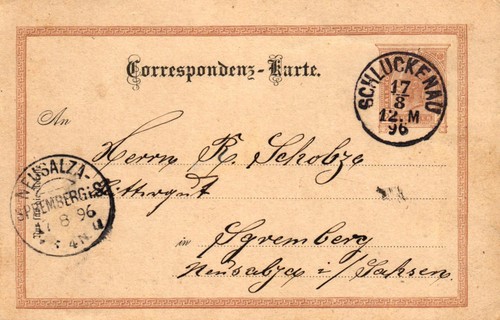 Correspondenz-Karte.
SCHLUCKENAU
17
8
12. M
96
An
Herrn R. Scholze
Rittergut
NEUSALZA-
SPREMBERG i. S.
17 8 96
4 N.
in Spremberg
Neusalza i/Sachsen